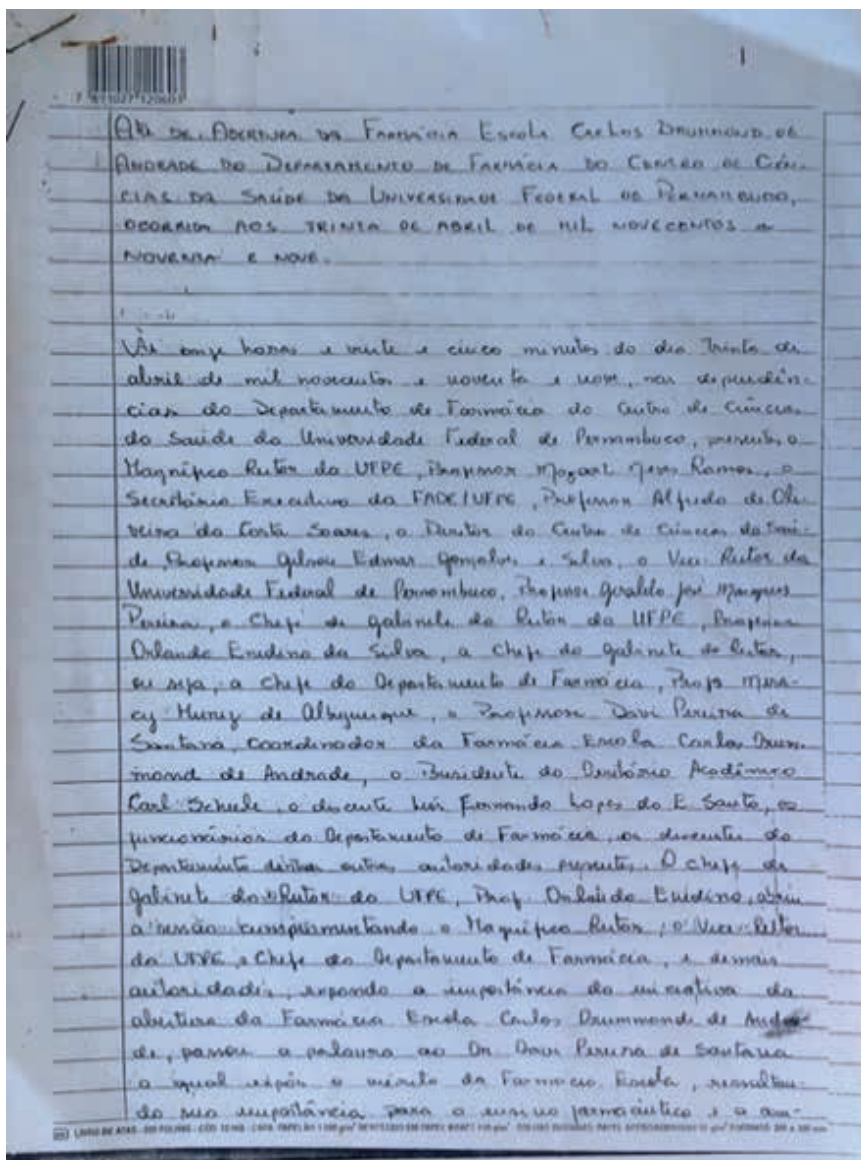 1
7 897027 120603
Ata de Abertura da Farmácia Escola Carlos Drummond de
Andrade do Departamento de Farmácia do Centro de Ciên-
cias da Saúde da Universidade Federal de Pernambuco,
ocorrida aos trinta de abril de mil novecentos e
noventa e nove.
Às onze horas e vinte e cinco minutos do dia trinta de
abril de mil novecentos e noventa e nove, nas dependên-
cias do Departamento de Farmácia do Centro de Ciências
da Saúde da Universidade Federal de Pernambuco, presentes o
Magnífico Reitor da UFPE, Professor Mozart Neves Ramos, o
Secretário Executivo da FADE/UFPE, Professor Alfredo de Oli-
veira da Costa Soares, o Diretor do Centro de Ciências da Saú-
de, Professor Gilson Edmar Gonçalves e Silva, o Vice-Reitor da
Universidade Federal de Pernambuco, Professor Geraldo José Marques
Pereira, o Chefe de gabinete do Reitor da UFPE, Professor
Orlando Enedino da Silva, a Chefe do gabinete do Reitor,
ou seja, a Chefe do Departamento de Farmácia, Profa Mira-
cy Muniz de Albuquerque, o Professor Davi Pereira de
Santana, Coordenador da Farmácia Escola Carlos Drum-
mond de Andrade, o Presidente do Diretório Acadêmico
Carl Scheele, o discente Luís Fernando Lopes do E. Santo, os
funcionários do Departamento de Farmácia, os discentes do
Departamento dentre outras autoridades presentes. O chefe de
gabinete do Reitor da UFPE, Prof. Orlando Enedino, abriu
a sessão cumprimentando o Magnífico Reitor, o Vice-Reitor
da UFPE, a Chefe do Departamento de Farmácia, e demais
autoridades, expondo a importância da iniciativa da
abertura da Farmácia Escola Carlos Drummond de Andra-
de, passou a palavra ao Dr. Davi Pereira de Santana
o qual expôs o mérito da Farmácia Escola, ressaltan-
do sua importância para o ensino farmacêutico e o am-
LIVRO DE ATAS